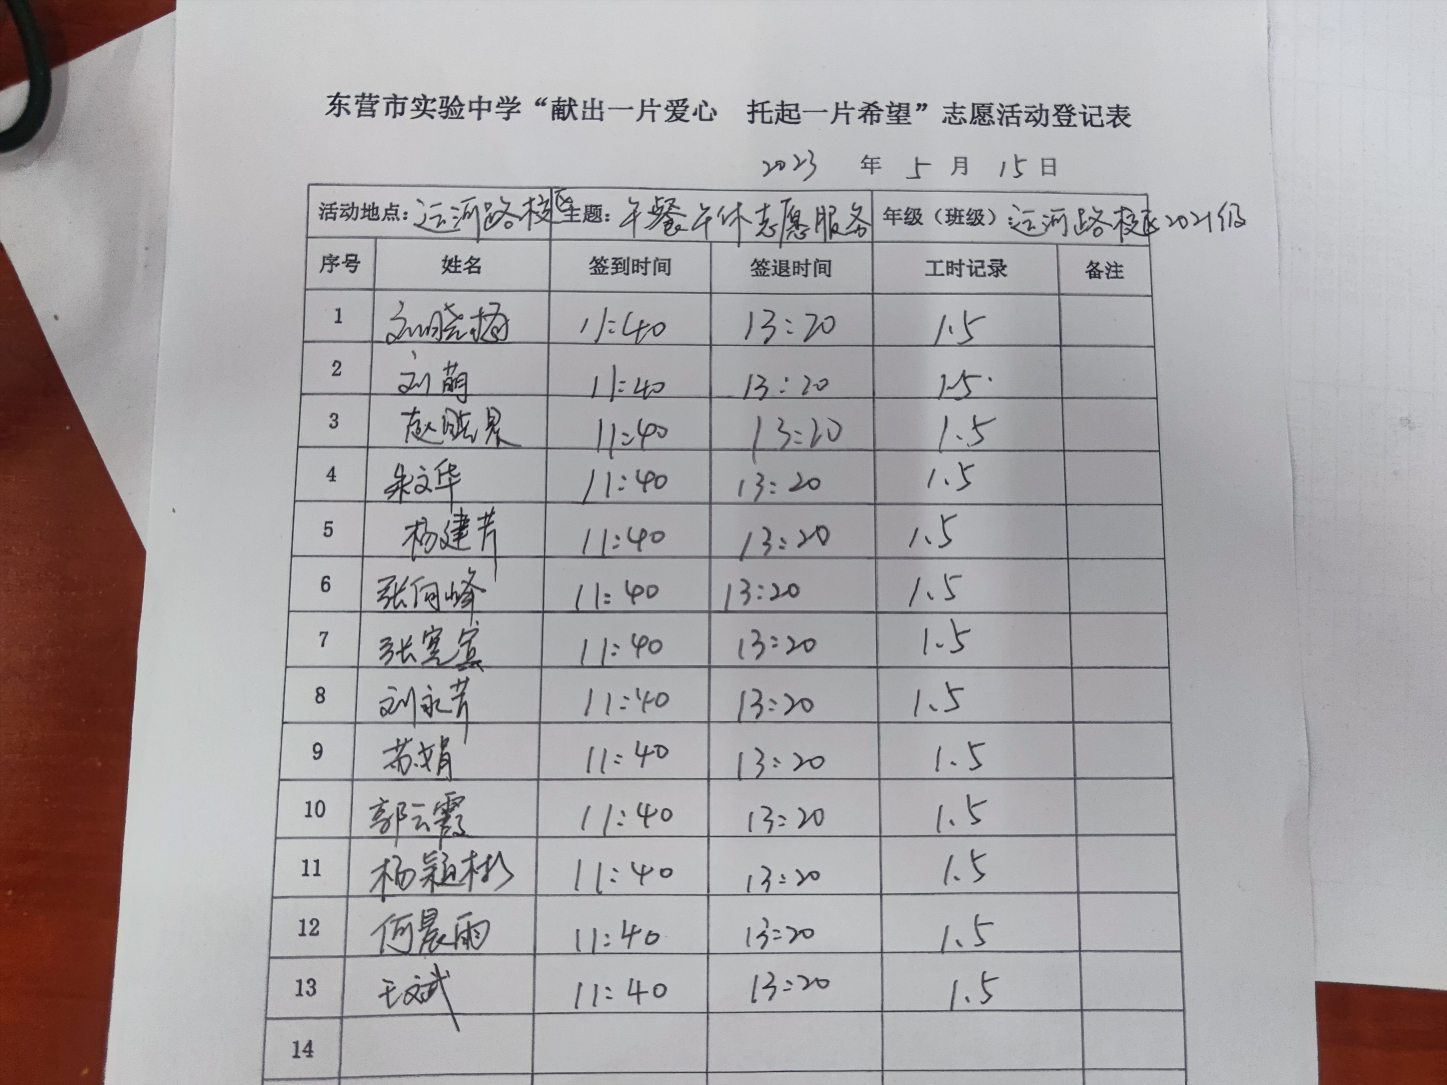 东营市实验中学“献出一片爱心 托起一片希望”志愿活动登记表
2023 年 5 月 15 日
活动地点：运河路校区 主题：午餐午休志愿服务 年级（班级）运河路校区2021级
序号 姓名 签到时间 签退时间 工时记录 备注
1 刘晓梅 11:40 13:20 1.5
2 刘萌 11:40 13:20 1.5
3 赵 11:40 13:20 1.5
4 朱文华 11:40 13:20 1.5
5 杨建芳 11:40 13:20 1.5
6 张向峰 11:40 13:20 1.5
7 张宾宾 11:40 13:20 1.5
8 刘永芳 11:40 13:20 1.5
9 苏娟 11:40 13:20 1.5
10 郭云霞 11:40 13:20 1.5
11 杨颖彬 11:40 13:20 1.5
12 何晨雨 11:40 13:20 1.5
13 王斌 11:40 13:20 1.5
14